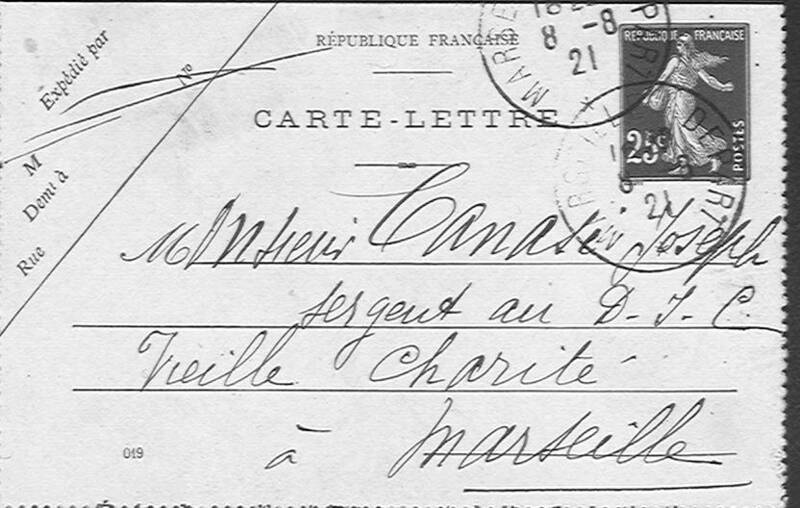 Expédié par
Nº
M
Demt à
Rue
RÉPUBLIQUE FRANÇAISE
CARTE-LETTRE
RÉPUBLIQUE FRANÇAISE
25c
POSTES
8 -8
21
DEPART
21
Monsieur Joseph
sergent au D. I. C.
Vieille Charité
à Marseille
019